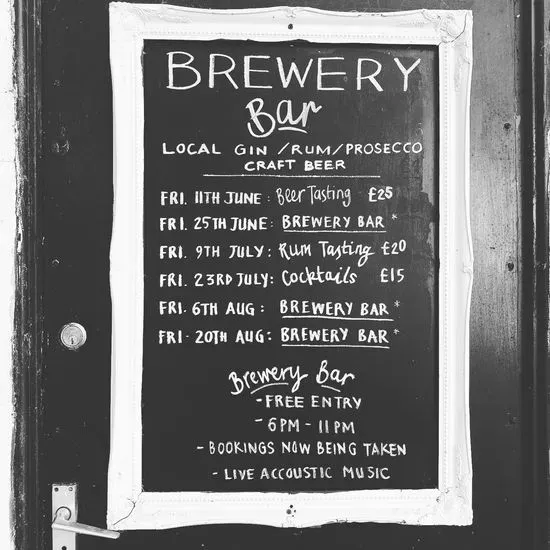 BREWERY
Bar
LOCAL GIN / RUM / PROSECCO
CRAFT BEER
FRI. 11TH JUNE: Beer Tasting £25
FRI. 25TH JUNE: BREWERY BAR *
FRI. 9TH JULY: Rum Tasting £20
FRI. 23RD JULY: Cocktails £15
FRI. 6TH AUG: BREWERY BAR *
FRI. 20TH AUG: BREWERY BAR *
Brewery Bar
- FREE ENTRY
- 6PM - 11PM
- BOOKINGS NOW BEING TAKEN
- LIVE ACCOUSTIC MUSIC